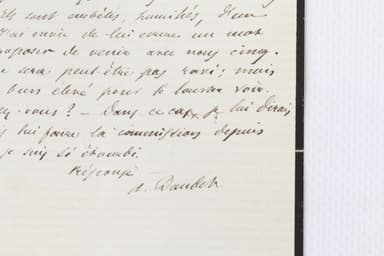 sont embêtés, humiliés, d'un
envie de lui écrire un mot
proposer de venir avec nous cinq.
sera peut-être pas ravi; mais
bien élevé pour le laisser voir.
vous? — Dans ce cas, je lui dirais
lui faire la commission depuis
je suis si étourdi.
Réponse
A. Daudet